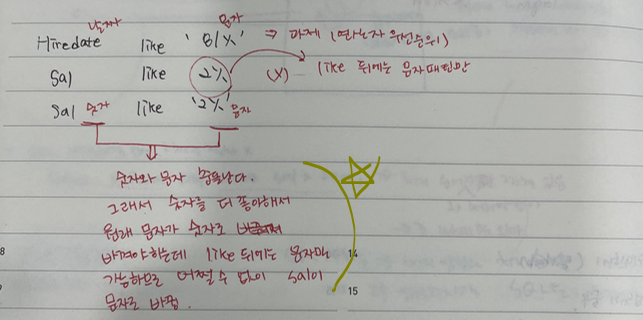 날짜 문자
Hiredate like '81%' ⇒ 과제 (연산자 우선순위)
Sal like 2% (X) like 뒤에는 문자패턴만
Sal 숫자 like '2%' 문자
숫자와 문자 충돌난다.
그래서 숫자를 더 좋아해서
원래 문자가 숫자로
바껴야하는데 like 뒤에는 문자만
가능하므로 어쩔 수 없이 sal이
문자로 바뀜.
8
14
15